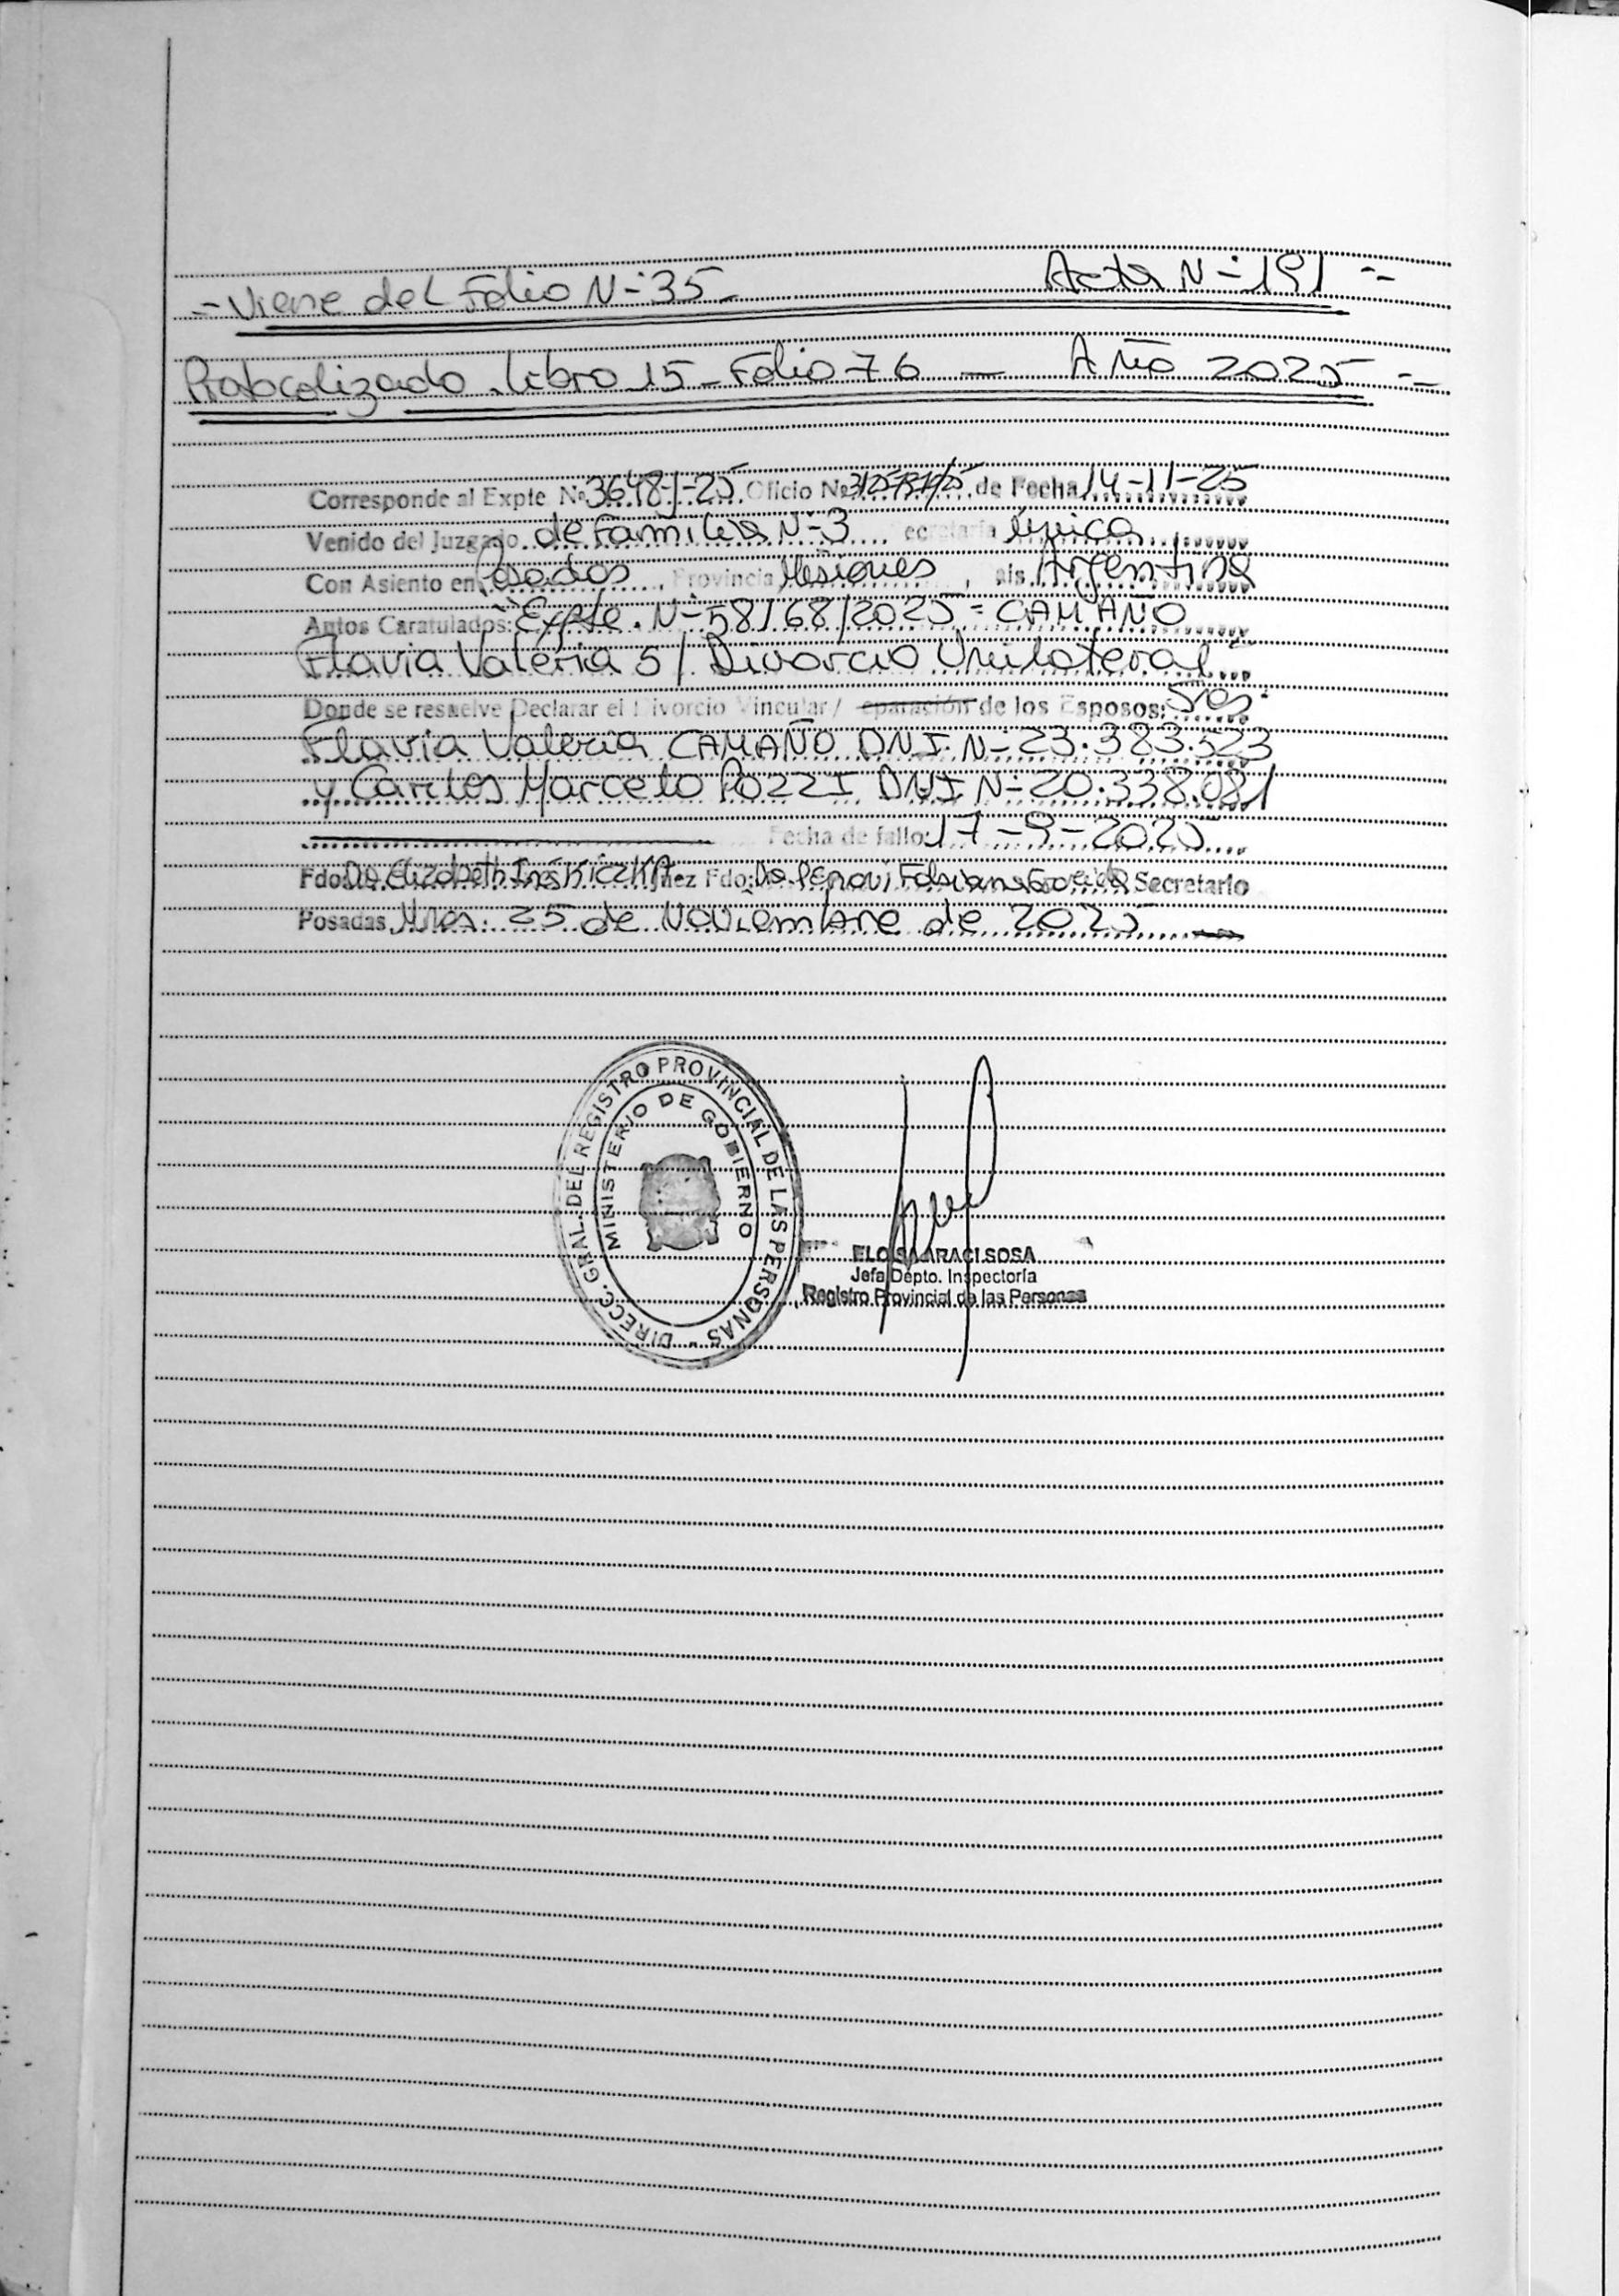 - Viene del Folio N- 35 - Acta N- 191 --
Protocolizado. Libro 15 - Folio 76 — Año 2025 --
Corresponde al Expte. Nº 3648-J-25 Oficio Nº de Fecha 14-11-25
Venido del Juzgado de Familia N-3 Secretaría Única
Con Asiento en Posadas, Provincia Misiones, País Argentina
Autos Caratulados: Expte. N- 58168/2025 - CAMAÑO
Flavia Valeria S/ Divorcio Unilateral
Donde se resuelve Declarar el Divorcio Vincular / Separación de los Esposos: Sres.
Flavia Valeria CAMAÑO DNI. N- 23.383.523
y Carlos Marcelo POZZI DNI N- 20.338.081
Fecha de fallo: 17-9-2025
Fdo: Dra. Elizabeth Inés Juez Fdo: Dra. Secretario
Posadas Mnes. 25 de Noviembre de 2025
DIRECC. GRAL. DEL REGISTRO PROVINCIAL DE LAS PERSONAS -
MINISTERIO DE GOBIERNO
ELOISA ARACI SOSA
Jefa Depto. Inspectoría
Registro Provincial de las Personas